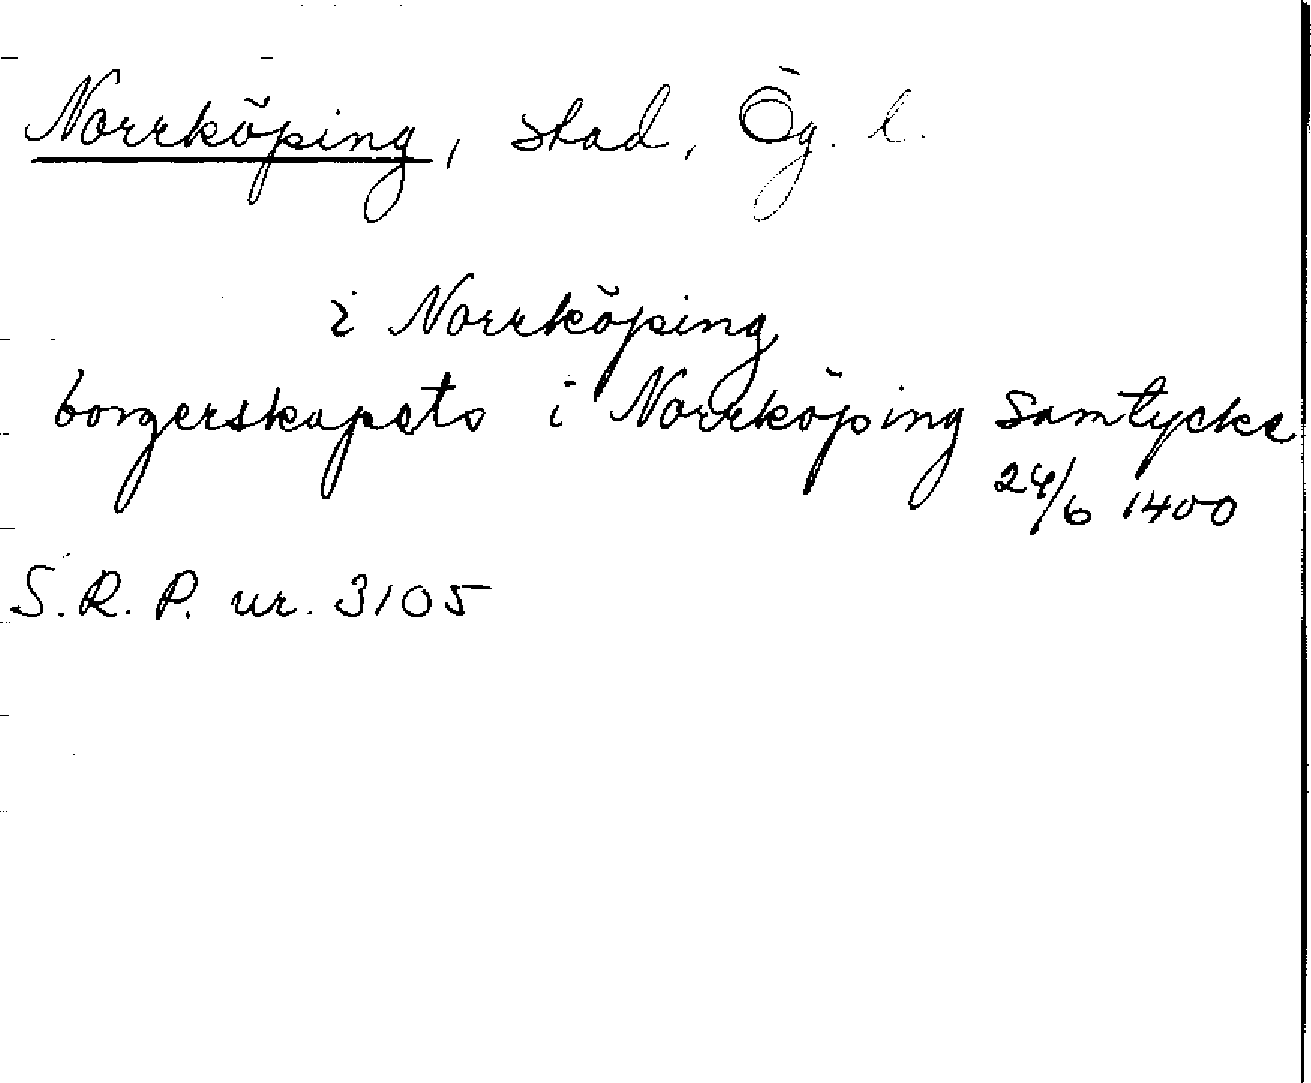 Norrköping, stad, Ög. l.
i Norrköping
borgerskapets i Norrköping samtycke
24/6 1400
S.R.P. nr. 3105